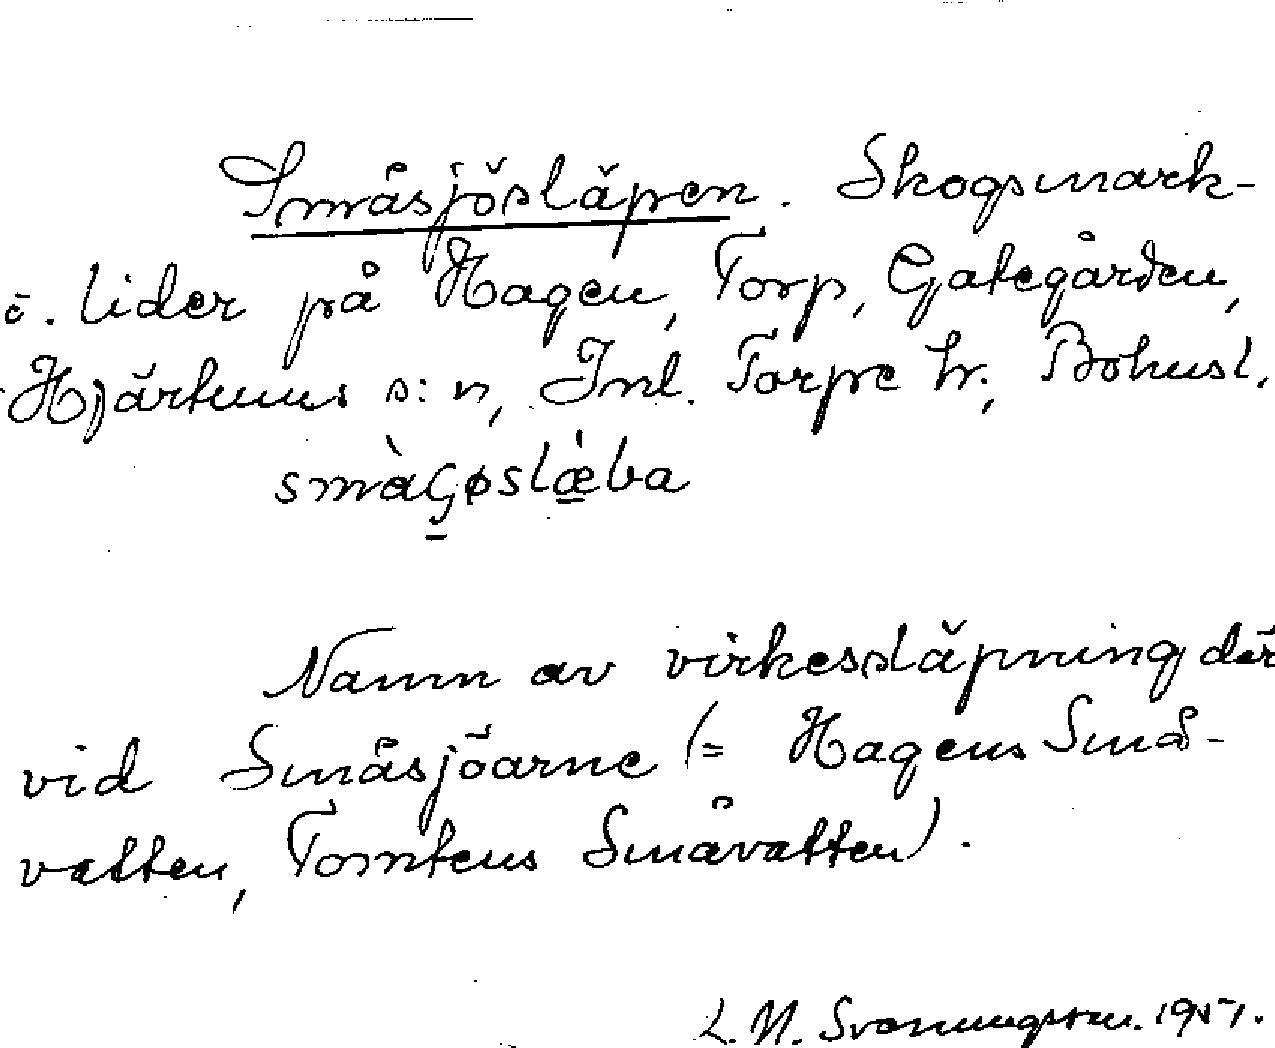 Småsjösläpen. Skogsmark-
o. lider på Hagen, Torp, Gategården,
Hjärtums s:n, Inl. Torpe hr, Bohusl.
smàGøslæ̀ba
Namn av virkessläpning där
vid Småsjöarne (= Hagens Små-
vatten, Tomtens Småvatten).
L. N. Svanungsson. 1951.